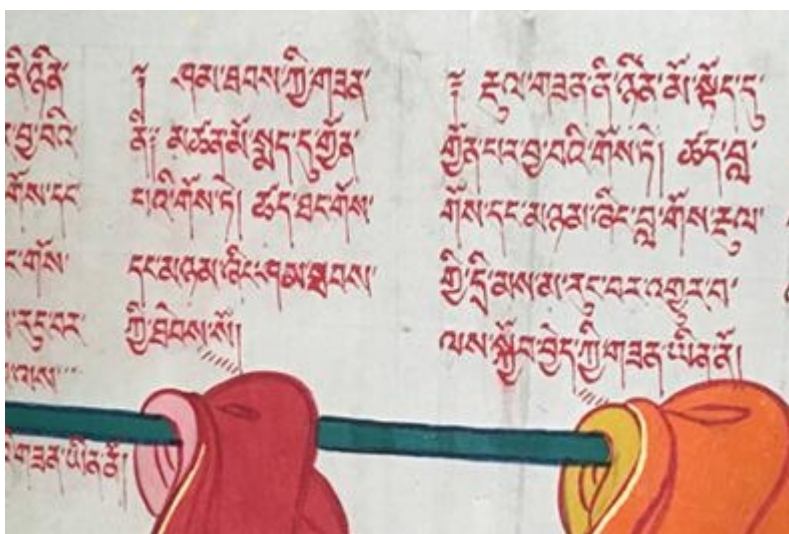 ནི་ཉིན་
བྱ་བའི་
གོས་དང་
གོས་
བར་
ལས་
གཟན་ཡིན་ནོ།
༈ ཤམ་ཐབས་ཀྱི་གཟན་
ནི༔ མཚན་མོ་སྨད་དུ་གྱོན་
པའི་གོས་ཏེ། ཚད་ཐང་གོས་
དང་མཉམ་ཞིང་ཤམ་ཐབས་
ཀྱི་ཐེབས་སོ།
༈ རྔུལ་གཟན་ནི་ཉིན་མོ་སྟོད་དུ་
གྱོན་པར་བྱ་བའི་གོས་ཏེ། ཚད་བླ་
གོས་དང་མཉམ་ཞིང་བླ་གོས་རྔུལ་
གྱི་དྲི་མས་མ་རུང་བར་འགྱུར་བ་
ལས་སྐྱོབ་བྱེད་ཀྱི་གཟན་ཡིན་ནོ།